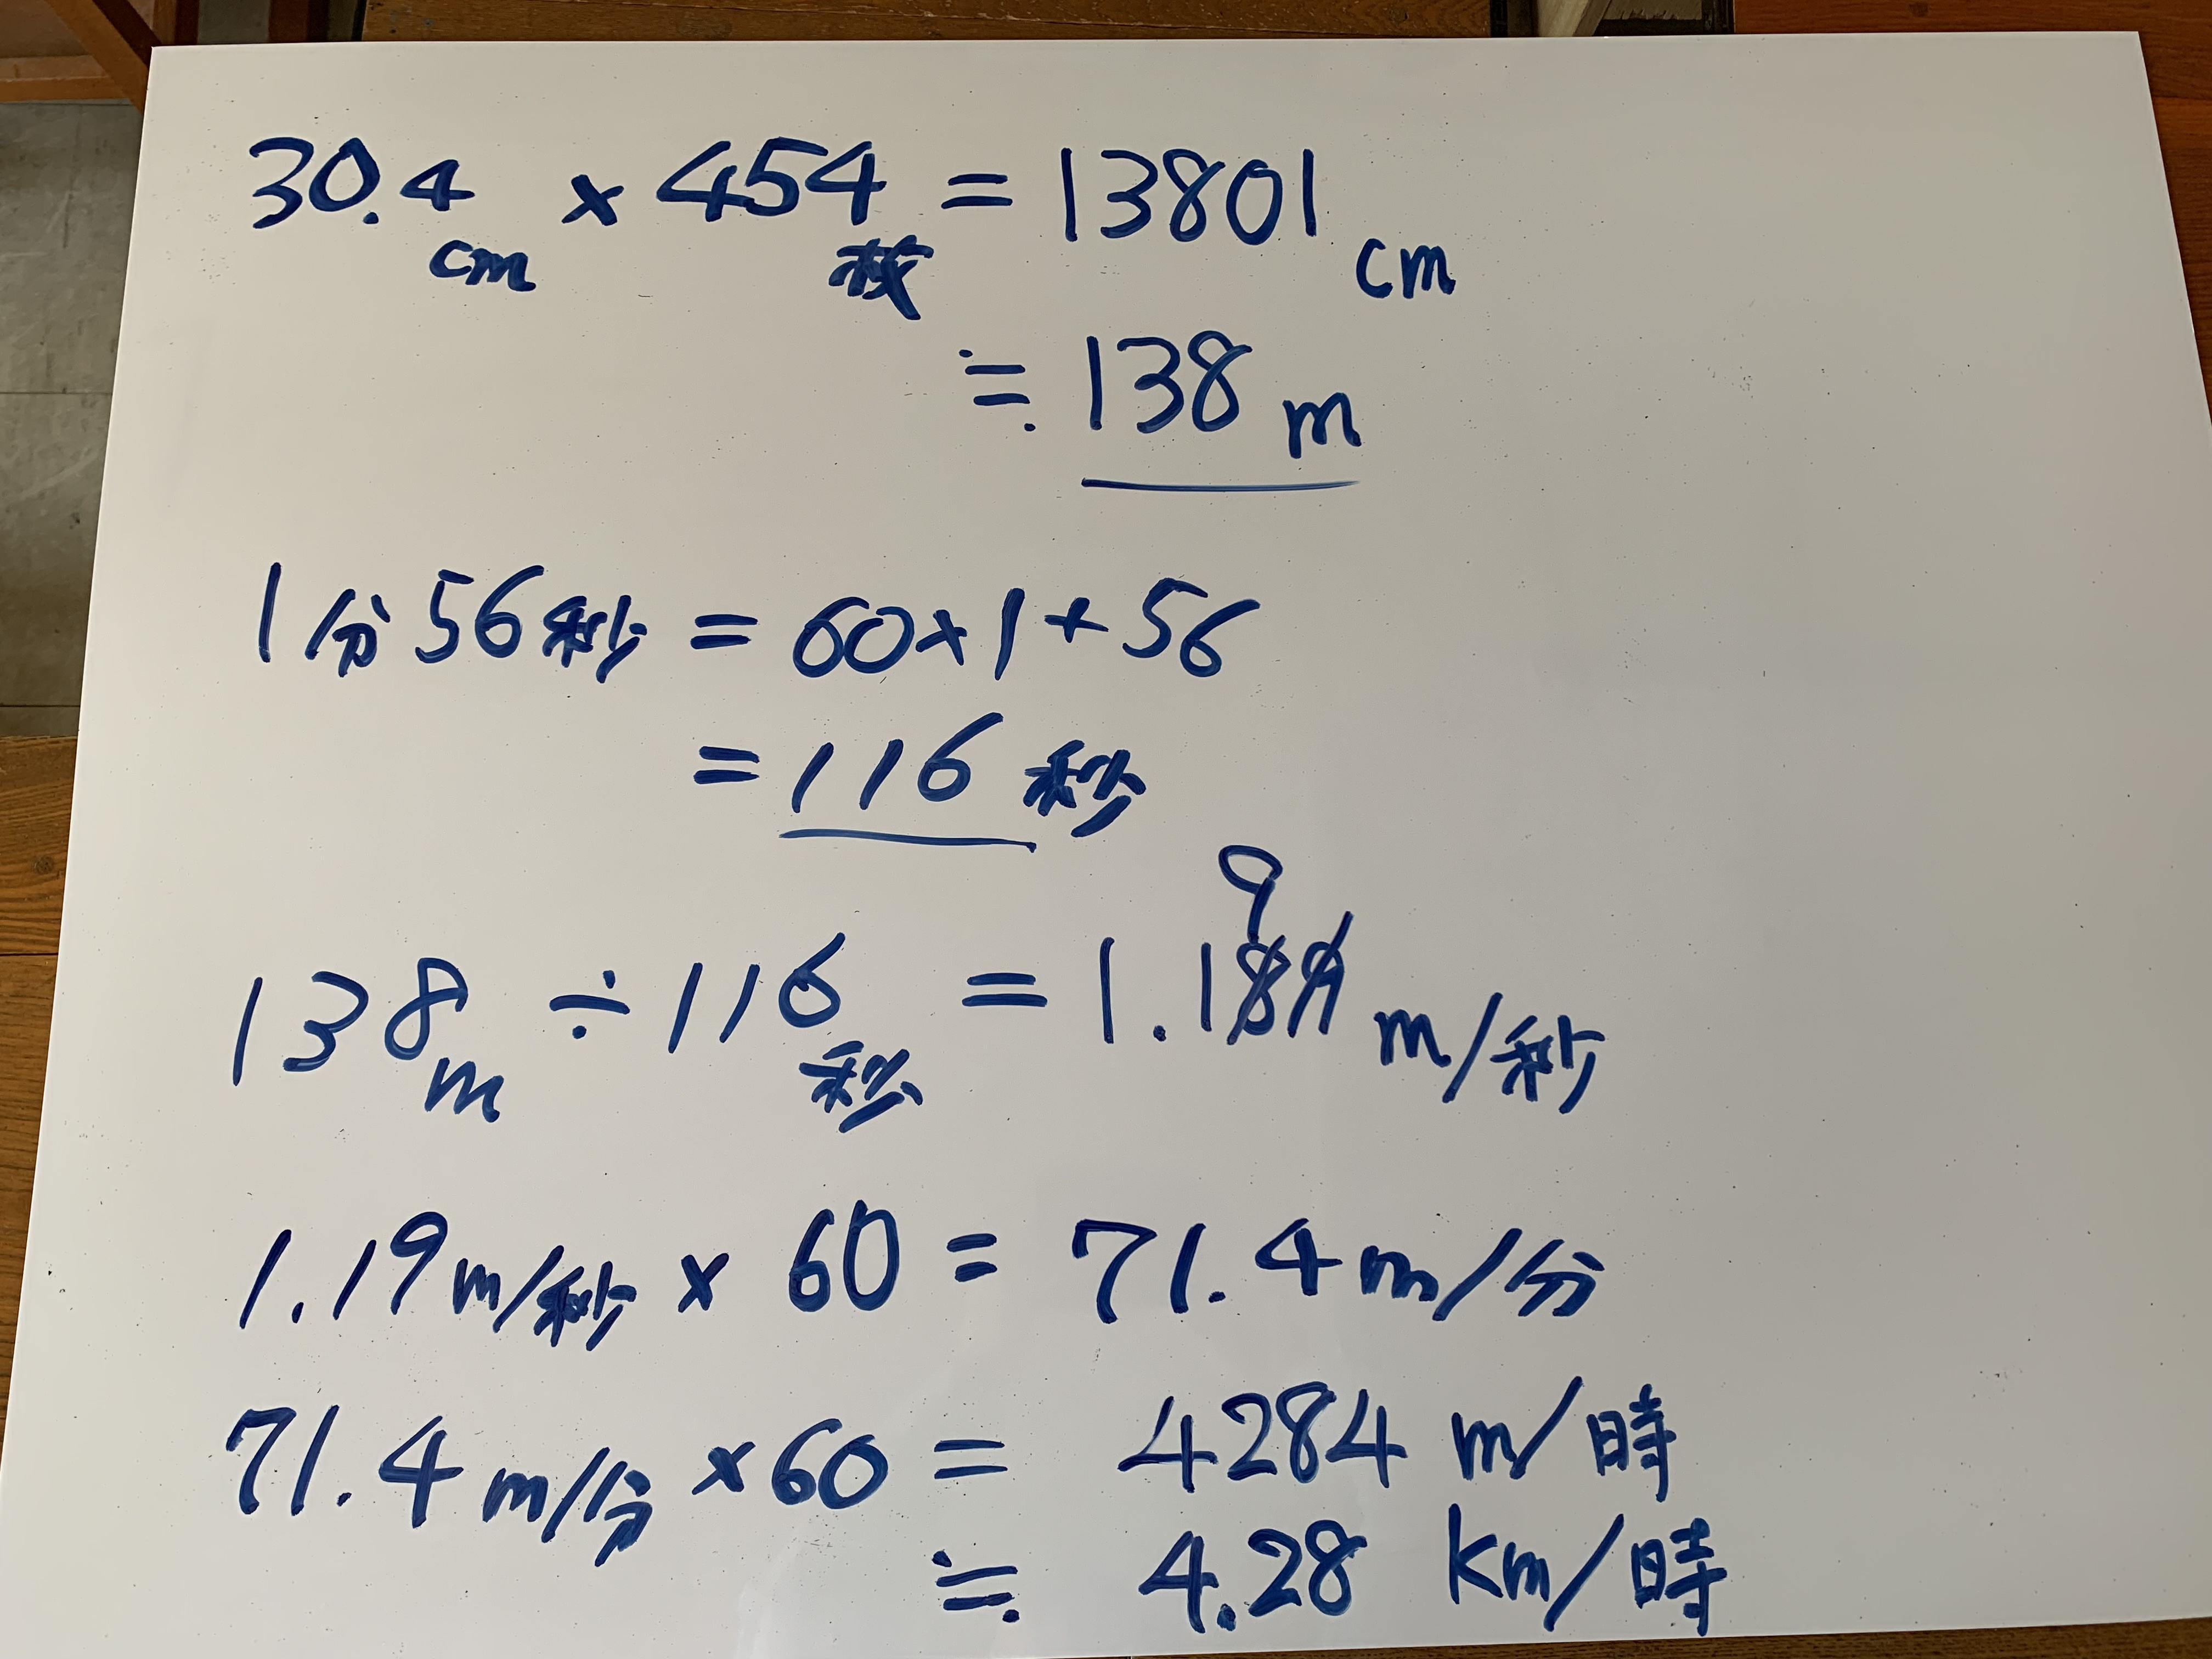 30.4cm × 454枚 = 13801cm
≒ 138m
1分56秒 = 60×1+56
= 116秒
138m ÷ 116秒 = 1.19m/秒
1.19m/秒 × 60 = 71.4m/分
71.4m/分 ×60 = 4284 m/時
≒ 4.28 km/時